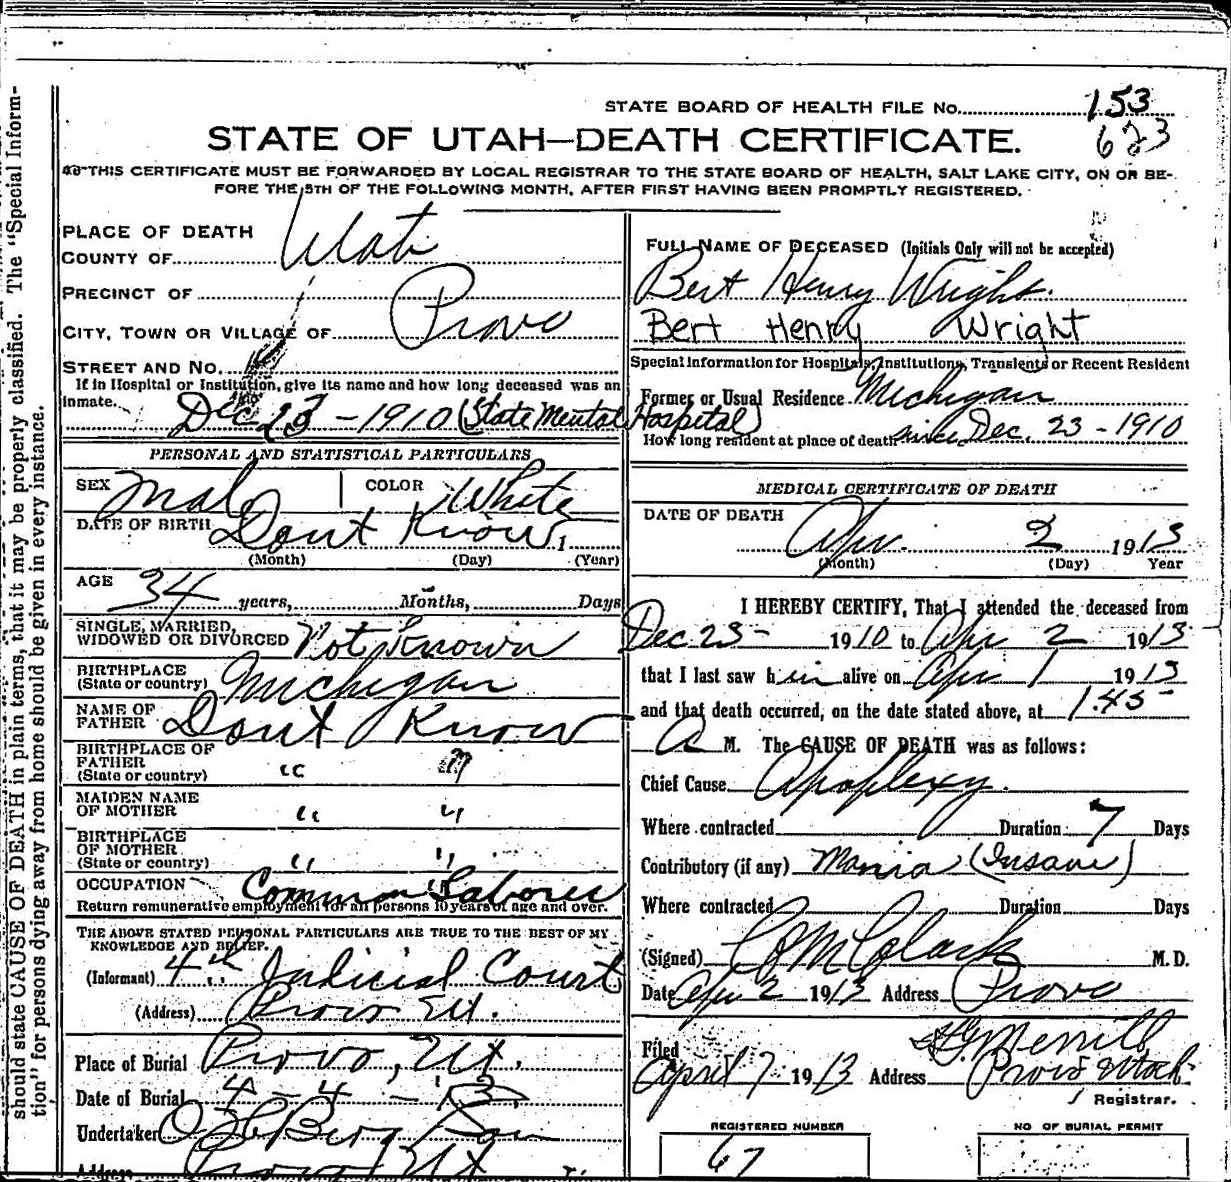 STATE BOARD OF HEALTH FILE No. 153
623
STATE OF UTAH—DEATH CERTIFICATE.
THIS CERTIFICATE MUST BE FORWARDED BY LOCAL REGISTRAR TO THE STATE BOARD OF HEALTH, SALT LAKE CITY, ON OR BE-
FORE THE 5TH OF THE FOLLOWING MONTH, AFTER FIRST HAVING BEEN PROMPTLY REGISTERED.
should state CAUSE OF DEATH in plain terms, that it may be properly classified. The "Special Inform-
tion" for persons dying away from home should be given in every instance.
PLACE OF DEATH
COUNTY OF Utah
PRECINCT OF
CITY, TOWN OR VILLAGE OF Provo
STREET AND No.
If in Hospital or Institution, give its name and how long deceased was an
inmate. Dec 23 - 1910 (State Mental Hospital)
PERSONAL AND STATISTICAL PARTICULARS
SEX Male COLOR White
DATE OF BIRTH Dont Know 1
(Month) (Day) (Year)
AGE 34 years, Months, Days
SINGLE, MARRIED,
WIDOWED OR DIVORCED Not Known
BIRTHPLACE
(State or country) Michigan
NAME OF
FATHER Dont Know
BIRTHPLACE OF
FATHER
(State or country) " "
MAIDEN NAME
OF MOTHER " "
BIRTHPLACE
OF MOTHER
(State or country) " "
OCCUPATION Common Laborer
Return remunerative employment for all persons 10 years of age and over.
THE ABOVE STATED PERSONAL PARTICULARS ARE TRUE TO THE BEST OF MY
KNOWLEDGE AND BELIEF.
(Informant) 4th Judicial Court
(Address) Provo Ut.
Place of Burial Provo, Ut.
Date of Burial 4 - 4 - 13
Undertaker O H Berg Son
Address Provo Ut
FULL NAME OF DECEASED (Initials Only will not be accepted)
Bert Henry Wright.
Bert Henry Wright
Special information for Hospitals, Institutions, Transients or Recent Resident
Former or Usual Residence Michigan
How long resident at place of death since Dec. 23 - 1910
MEDICAL CERTIFICATE OF DEATH
DATE OF DEATH
Apr. 2 1913
(Month) (Day) Year
I HEREBY CERTIFY, That I attended the deceased from
Dec 23 1910 to Apr 2 1913
that I last saw him alive on Apr 1 1913
and that death occurred, on the date stated above, at 1.45
A M. The CAUSE OF DEATH was as follows:
Chief Cause Apoplexy.
Where contracted Duration 7 Days
Contributory (if any) Mania (Insane)
Where contracted Duration Days
(Signed) Clark M.D.
Date Apr 2 1913 Address Provo
Filed Merrill
April 7 1913 Address Provo Utah
Registrar.
REGISTERED NUMBER
67
NO OF BURIAL PERMIT